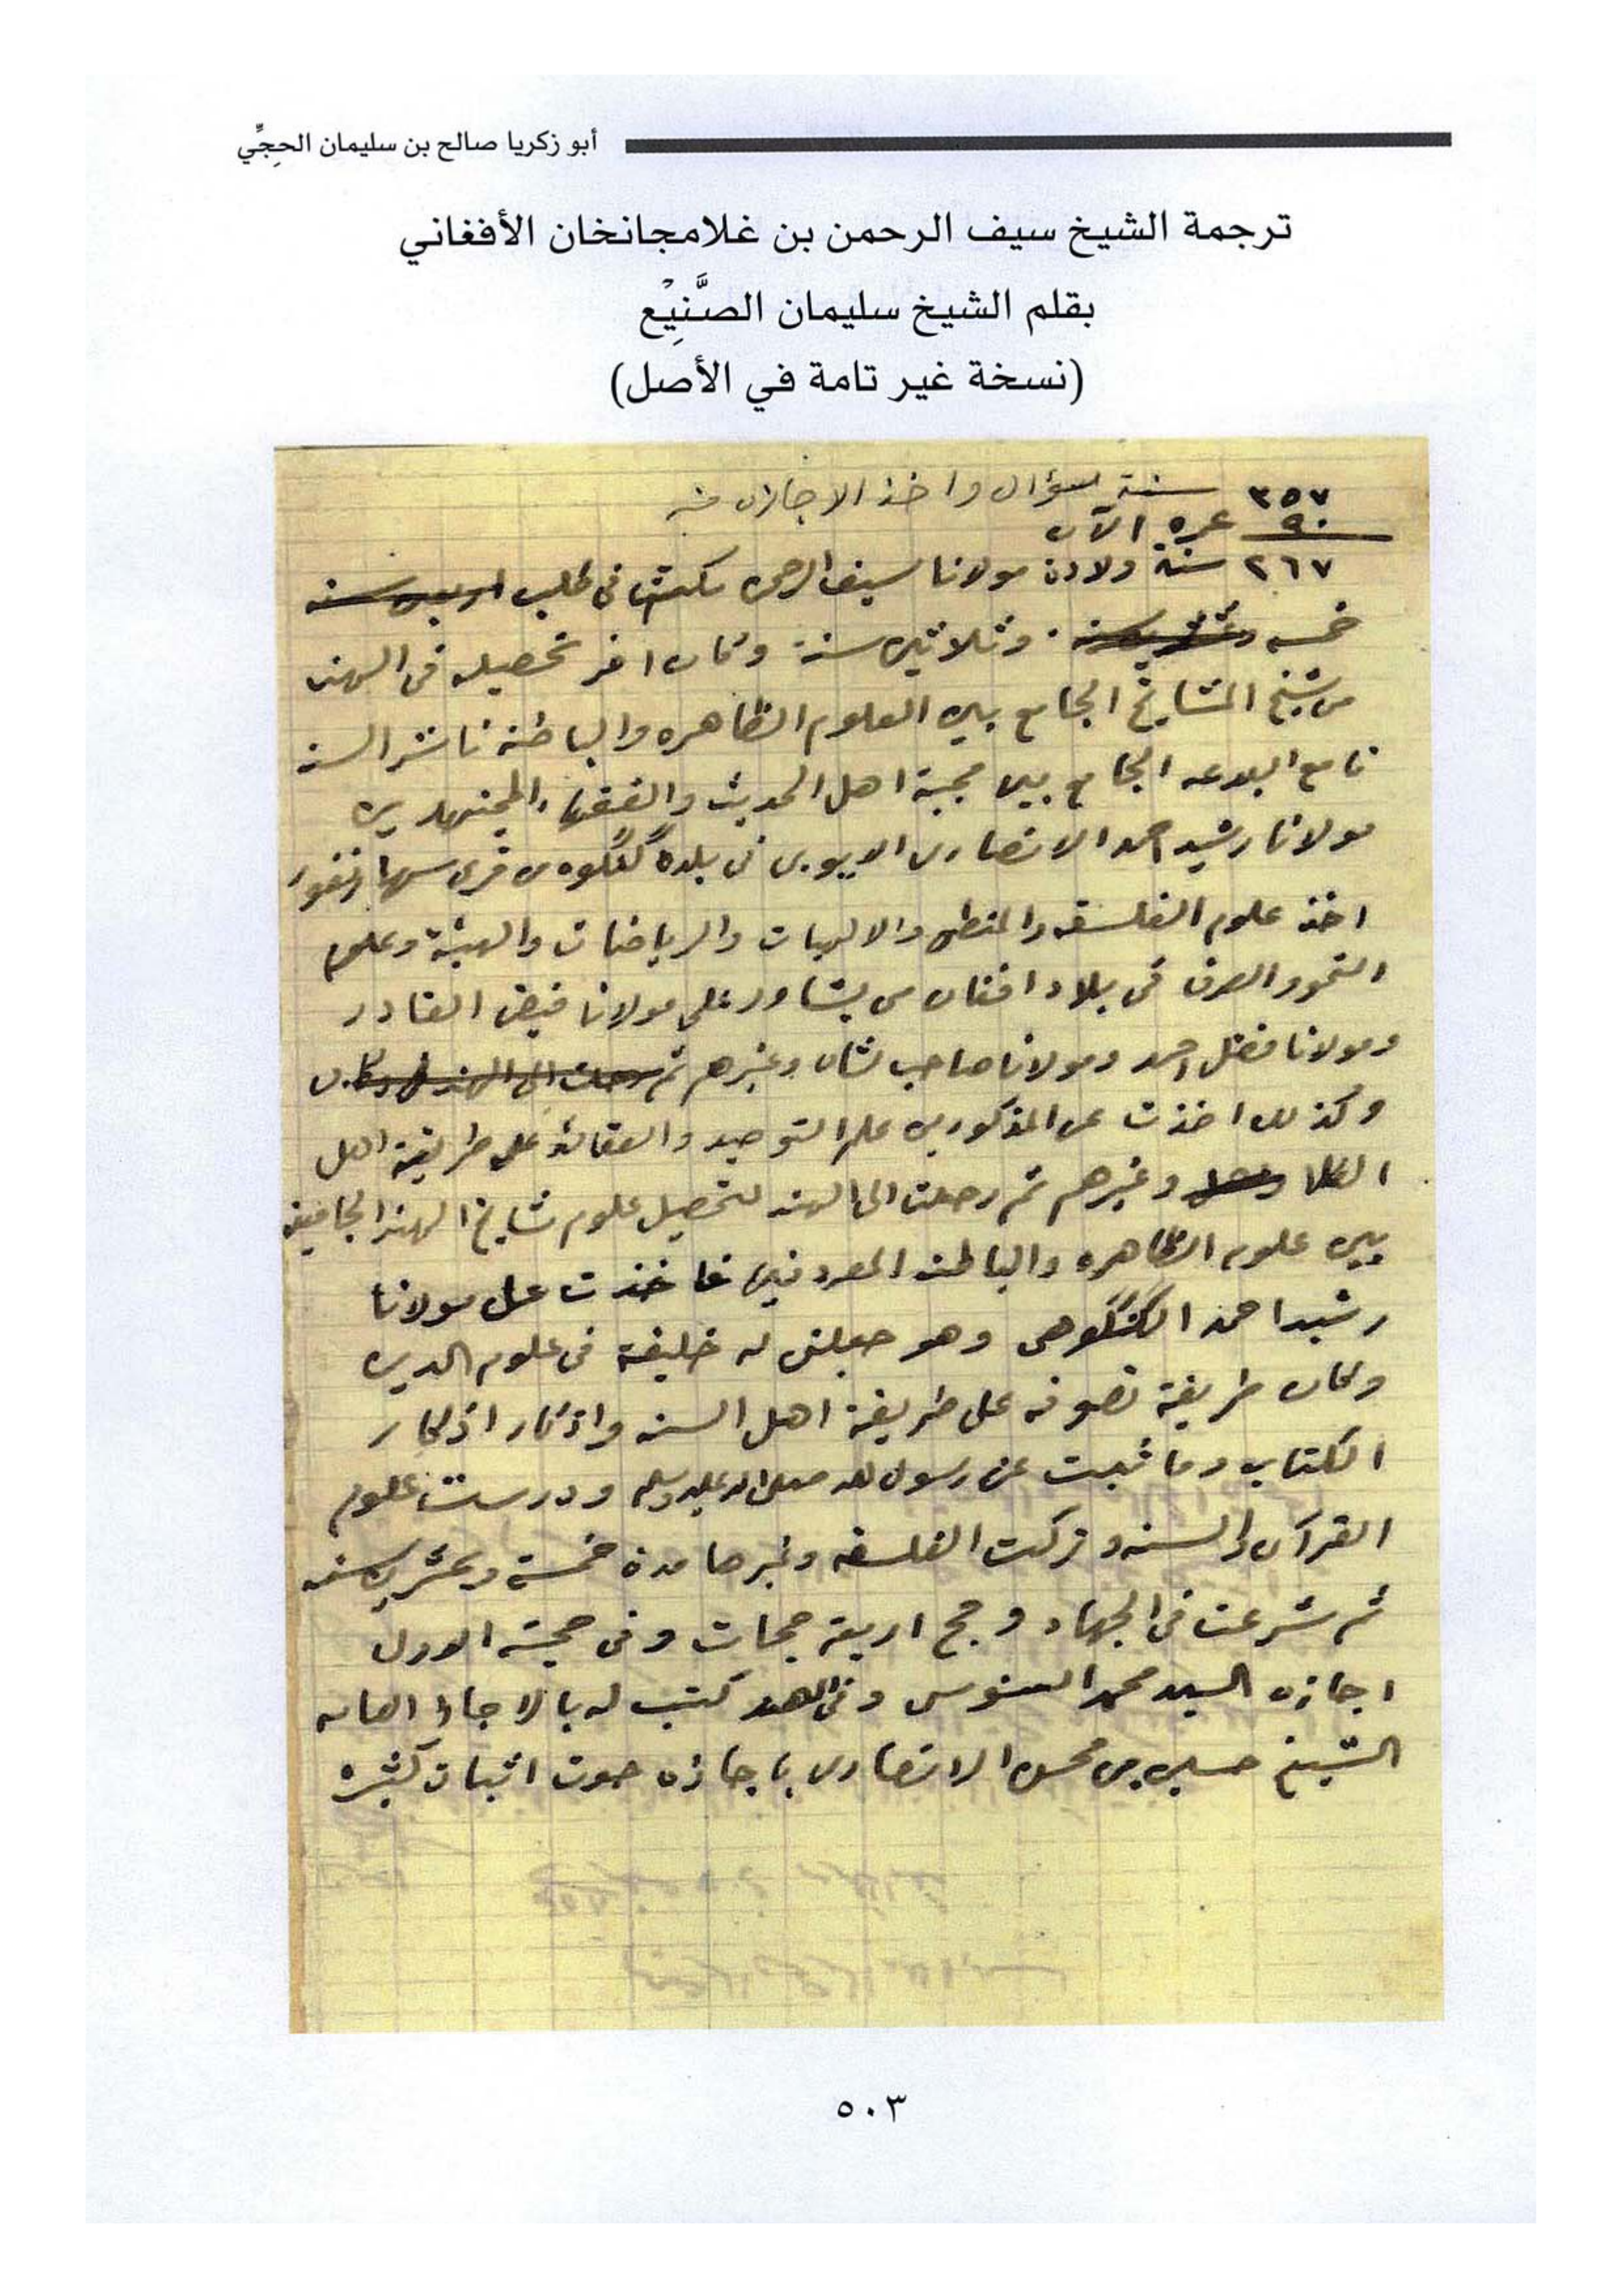 أبو زكريا صالح بن سليمان الحِجِّي
ترجمة الشيخ سيف الرحمن بن غلامجانخان الأفغاني
بقلم الشيخ سليمان الصَّنِيْع
(نسخة غير تامة في الأصل)
٣٥٧ سنة سؤال واخذ الاجازه منه
٩٠ عمره الآن
٢٦٧ سنة ولادة مولانا سيف الرحمن مكثت في طلب اربعين سنه
خمسه وعشرين سنه وثلاثين سنة وكان اخر تحصيله في الهند
من شيخ المشايخ الجامع بين العلوم الظاهره والباطنه ناشر السنه
قامع البدعه الجامع بين محبة اهل الحديث والفقهاء المجتهدين
مولانا رشيد احمد الانصاري الايوبي في بلدة گنگوه من قرى سهارنفور
اخذ علوم الفلسفه والمنطق والالهيات والرياضات والهيئة وعلم
النحو والصرف في بلاد افغان من پشاور على مولانا فيض القادر
ومولانا فضل احمد ومولانا صاحب شان وغيرهم ثم رحلت الى الهند
وكذلك اخذت عن المذكورين علم التوحيد والعقائد على طريقة اهل
الكلا وغيرهم ثم رحلت الى الهند لتحصيل علوم مشايخ الهند الجامعين
بين علوم الظاهره والباطنه المعروفين فاخذت على مولانا
رشيد احمد الگنگوهي وهو جعلني له خليفة في علوم الدين
وكان طريقة تصوفه على طريقة اهل السنه واذكار اذكار
الكتاب وما ثبت عن رسول الله صلى الله عليه وسلم ودرست علوم
القرآن والسنه وتركت الفلسفه وغيرها مدة خمسة وعشرين سنه
ثم شرعت في الجهاد وحج اربعة حجات وفي حجته الاولى
اجازه السيد محمد السنوسي وفي الهند كتب له بالاجازة العامه
الشيخ حسين بن محسن الانصاري باجازه حوت اثبات كثيره
٥٠٣